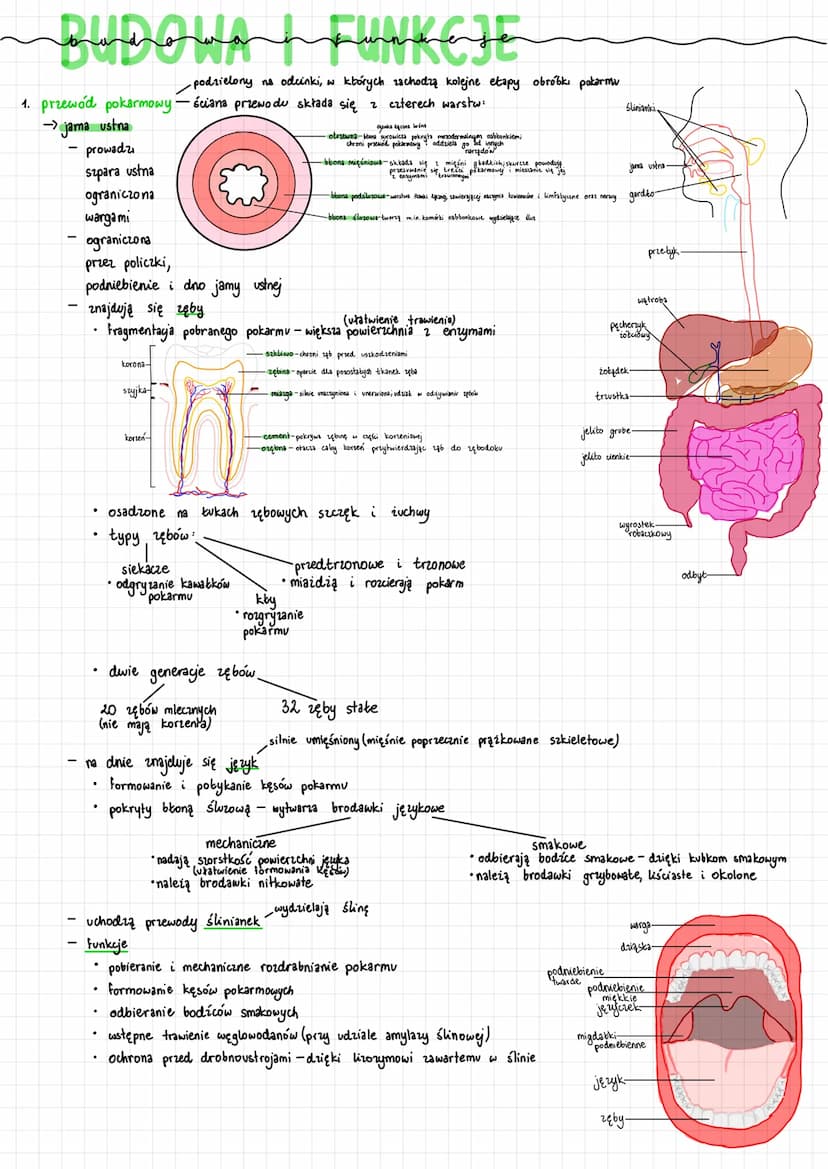 BUDOWA I FUNKCJE
budowa i funkcje
podzielony na odcinki, w których zachodzą kolejne etapy obróbki pokarmu
1. przewód pokarmowy — ściana przewodu składa się z czterech warstw:
→ jama ustna
- prowadzi
szpara ustna
ograniczona
wargami
- ograniczona
przez policzki,
podniebienie i dno jamy ustnej
tkanka łączna luźna
otrzewna - błona surowicza pokryta mezodermalnym nabłonkiem;
chroni przewód pokarmowy i oddziela go od innych
narządów
błona mięśniowa - składa się z mięśni gładkich; skurcze powodują
przesuwanie się treści pokarmowej i mieszanie się jej
z enzymami trawiennymi
błona podśluzowa - warstwa tkanki łącznej zawierającej naczynia krwionośne i limfatyczne oraz nerwy
błona śluzowa - tworzą m.in. komórki nabłonkowe wydzielające śluz
- znajdują się zęby
(ułatwienie trawienia)
• fragmentacja pobranego pokarmu – większa powierzchnia z enzymami
korona
szyjka
korzeń
szkliwo - chroni ząb przed uszkodzeniami
zębina - oparcie dla pozostałych tkanek zęba
miazga - silnie unaczyniona i unerwiona; udział w odżywianiu zębów
cement - pokrywa zębinę w części korzeniowej
ozębna - otacza cały korzeń przytwierdzając ząb do zębodołu
• osadzone na łukach zębowych szczęk i żuchwy
• typy zębów:
siekacze
• odgryzanie kawałków
pokarmu
kły
• rozgryzanie
pokarmu
przedtrzonowe i trzonowe
• miażdżą i rozcierają pokarm
• dwie generacje zębów
20 zębów mlecznych
(nie mają korzenia)
32 zęby stałe
silnie umięśniony (mięśnie poprzecznie prążkowane szkieletowe)
- na dnie znajduje się język
• formowanie i połykanie kęsów pokarmu
• pokryty błoną śluzową – wytwarza brodawki językowe
mechaniczne
• nadają szorstkość powierzchni języka
(ułatwienie formowania kęsów)
• należą brodawki nitkowate
smakowe
• odbierają bodźce smakowe – dzięki kubkom smakowym
• należą brodawki grzybowate, liściaste i okolone
wydzielają ślinę
- uchodzą przewody ślinianek
- funkcje
• pobieranie i mechaniczne rozdrabnianie pokarmu
• formowanie kęsów pokarmowych
• odbieranie bodźców smakowych
• wstępne trawienie węglowodanów (przy udziale amylazy ślinowej)
• ochrona przed drobnoustrojami – dzięki lizozymowi zawartemu w ślinie
ślinianki
jama ustna
gardło
przełyk
wątroba
pęcherzyk
żółciowy
żołądek
trzustka
jelito grube
jelito cienkie
wyrostek
robaczkowy
odbyt
warga
dziąsła
podniebienie
twarde
podniebienie
miękkie
języczek
migdałki
podniebienne
język
zęby